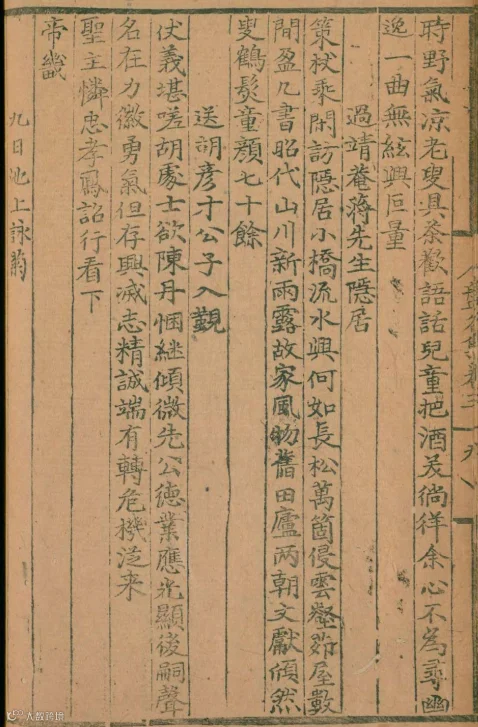 時野氣凉老叟具茶歡語話兒童把酒羙徜徉余心不為尋幽
逸一曲無絃興叵量
過靖菴蔣先生隱居
策杖乘閑訪隱居小橋流水興何如長松萬箇侵雲壑茆屋數
間盈几書昭代山川新雨露故家風物舊田廬两朝文獻傾然
叟鶴髮童顔七十餘
送胡彦才公子入覲
仗義堪嗟胡處士欲陳丹悃継傾微先公德業應光顯後嗣聲
名在力徽勇氣但存興滅志精誠端有轉危機泛来
聖主憐忠孝鳳詔行看下
帝畿
九日池上詠菊
卷三
人数跨境